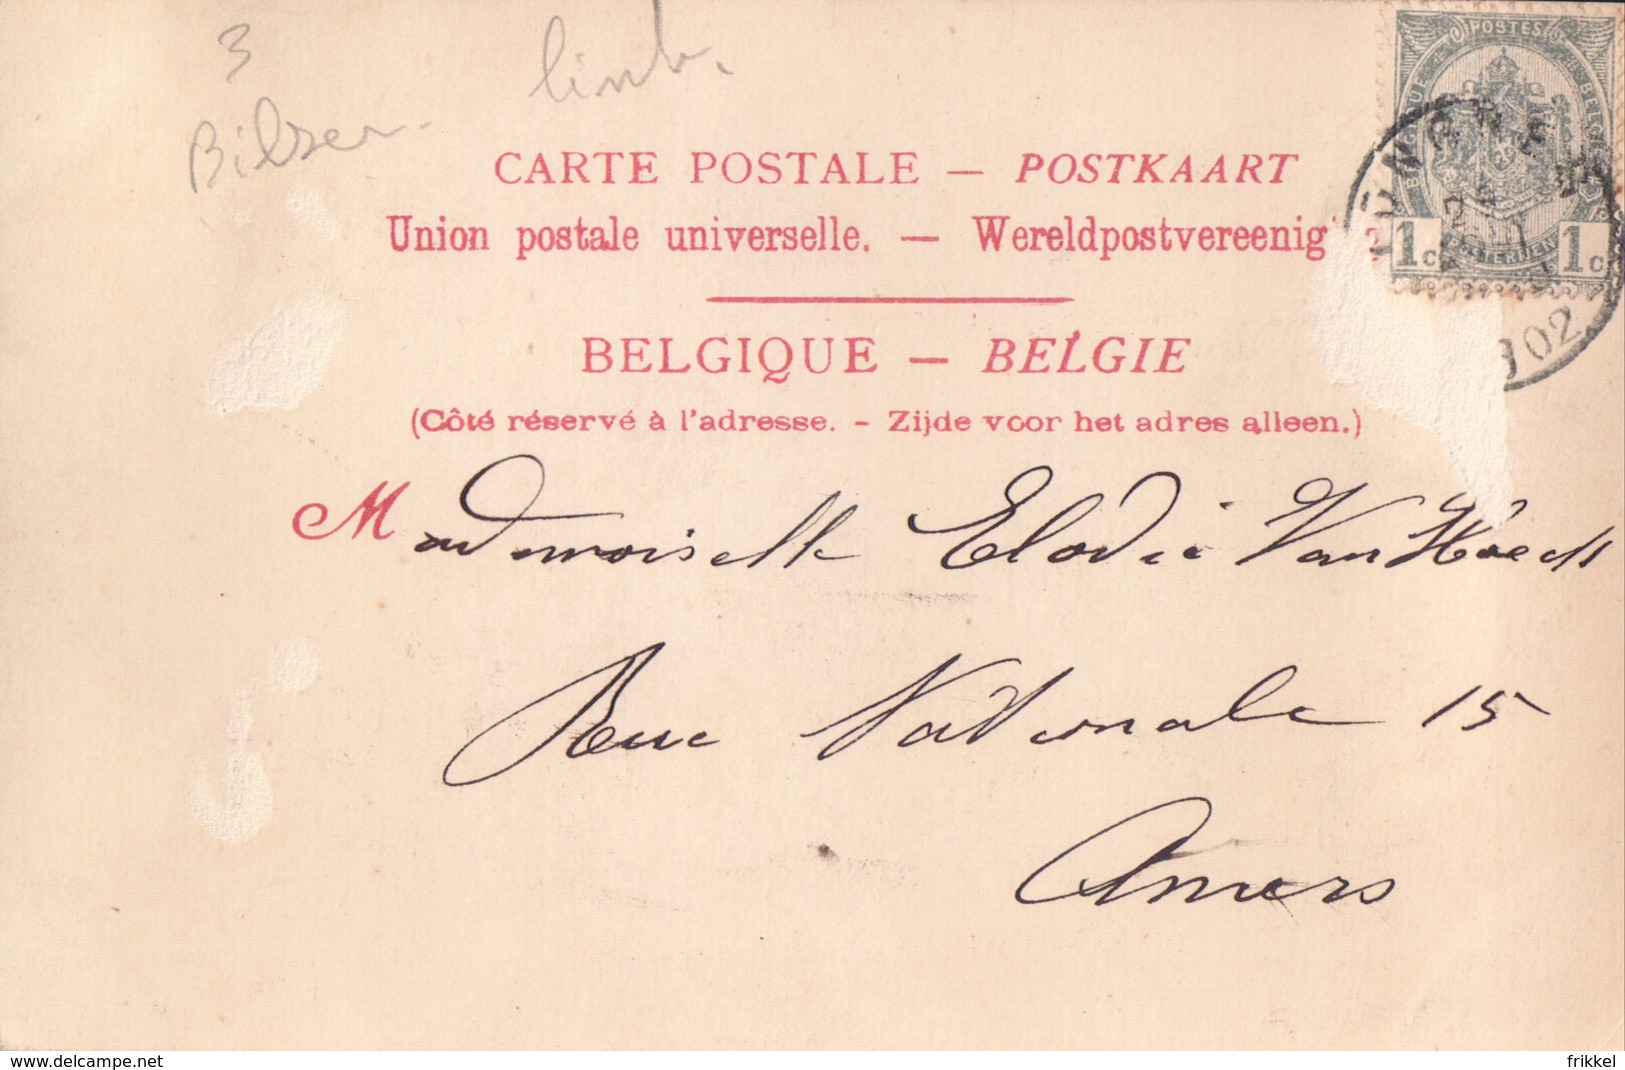 3
limb.
Bilsen.
POSTES
BELGIQUE
1c 1c
TONGRES
1902
CARTE POSTALE — POSTKAART
Union postale universelle. — Wereldpostvereenig
BELGIQUE — BELGIE
(Côté réservé à l'adresse. - Zijde voor het adres alleen.)
Mademoiselle Elodie Van
Rue Nationale 15
Anvers
www.delcampe.net
frikkel